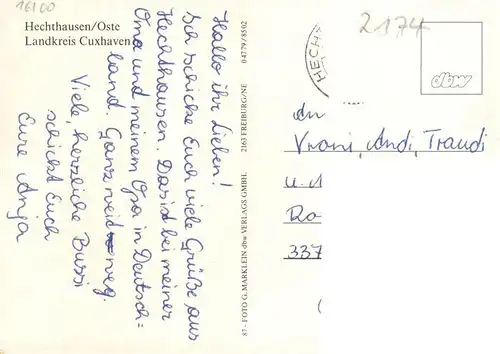 16100
Hechthausen/Oste
Landkreis Cuxhaven
Hallo ihr Lieben!
Ich schicke Euch viele Grüße aus
Hechthausen. Das ist bei meiner
Oma und meinem Opa in Deutsch=
land. Ganz weid weg.
Viele, herzliche Bussi
schickt Euch
Eure Anja
48 - FOTO G. MARKLEIN dbw VERLAGS GMBH, 2163 FREIBURG/NE 04779/8502
HECH
2174
dbw
An
Vroni, Andi, Traudi
u.
Ro
337